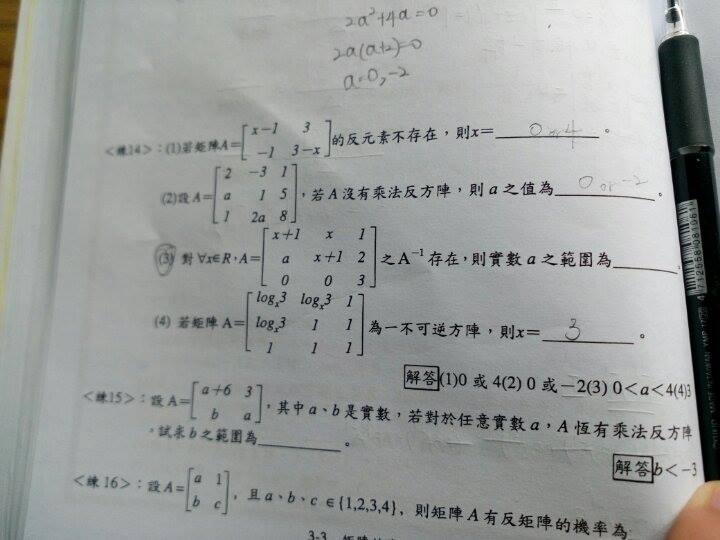 2a²+4a=0
2a(a+2)=0
a=0,-2
<練14>：(1)若矩陣A=[x−1 3; −1 3−x]的反元素不存在，則x= 0 or 4 。
(2)設A=[2 −3 1; a 1 5; 1 2a 8]，若A沒有乘法反方陣，則a之值為 0 or -2 。
(3) 對∀x∈R，A=[x+1 x 1; a x+1 2; 0 0 3]之A⁻¹存在，則實數a之範圍為______。
(4) 若矩陣A=[logₓ3 logₓ3 1; logₓ3 1 1; 1 1 1]為一不可逆方陣，則x= 3 。
解答(1)0 或 4(2) 0 或−2(3) 0<a<4(4)3
<練15>：設A=[a+6 3; b a]，其中a、b是實數，若對於任意實數a，A恆有乘法反方陣
，試求b之範圍為______。
解答b<−3
<練16>：設A=[a 1; b c]，且a、b、c ∈{1,2,3,4}，則矩陣A有反矩陣的機率為
3-3